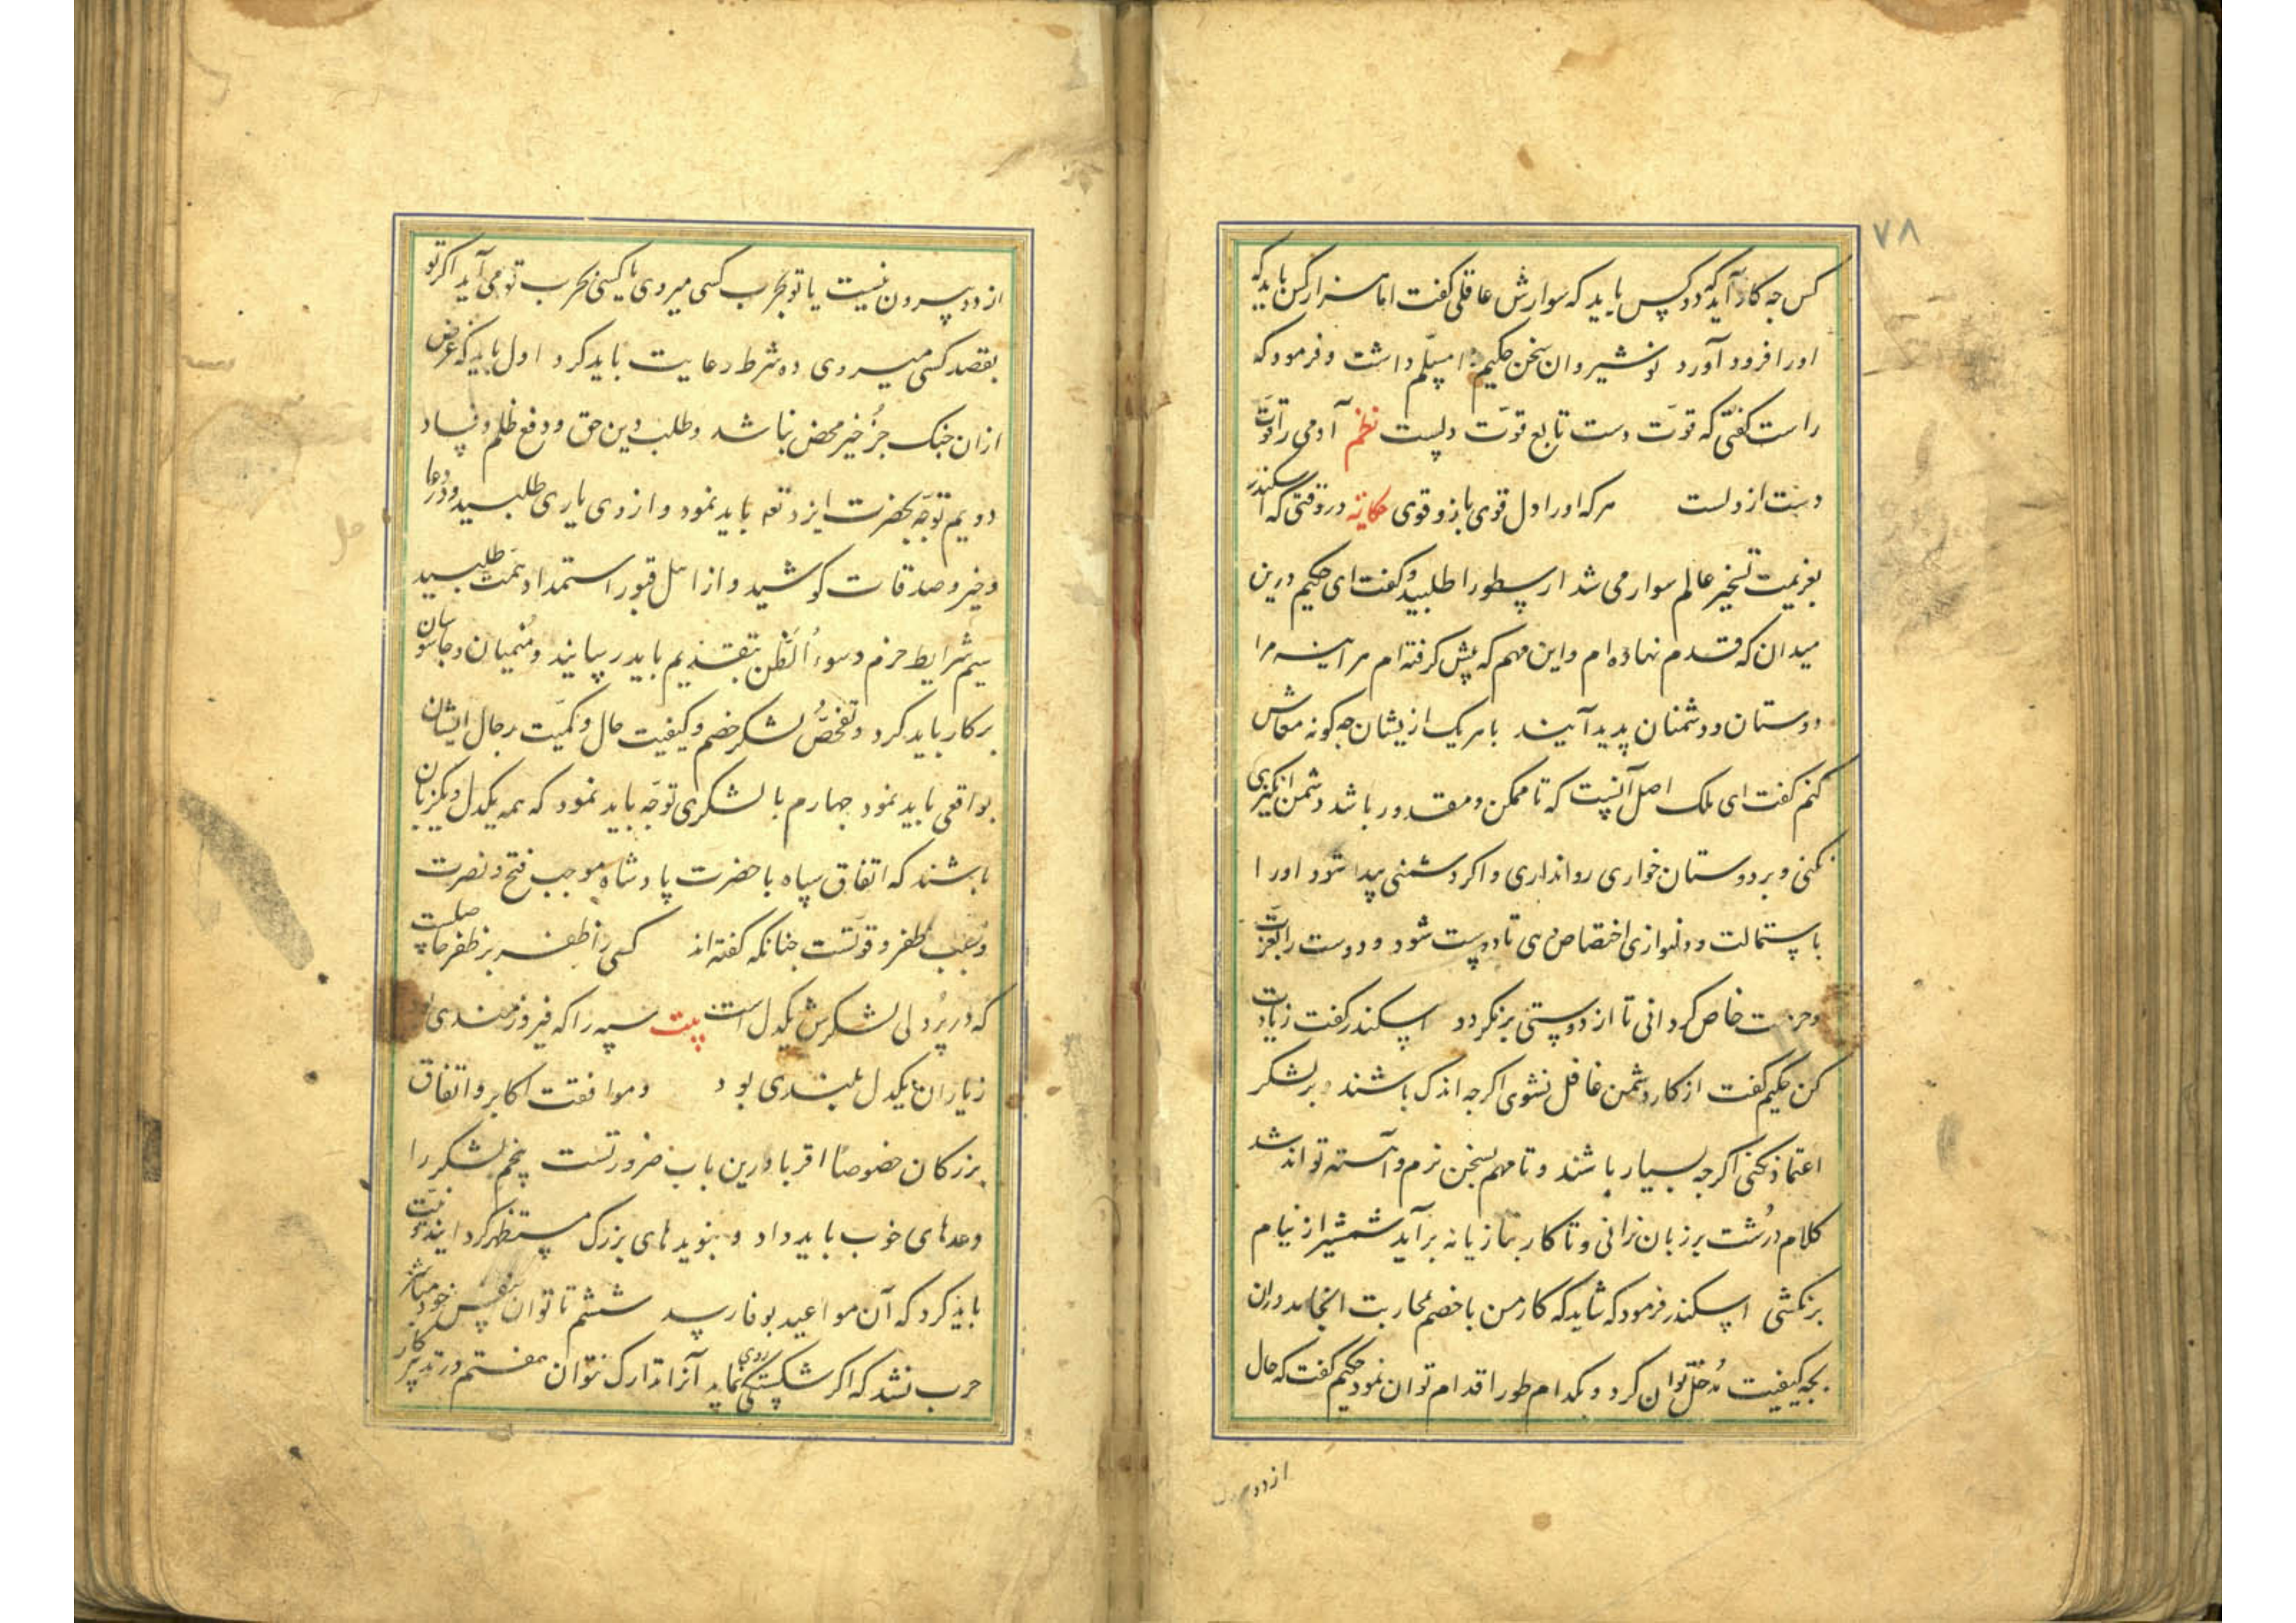 ۷۸
کس جه کار آید که دو کس باید که سوارش عاقلی کفت اما هزار کس باید که
اورا فرود آورد نوشیروان سخن حکیم را مسلّم داشت و فرمود که
راست کفتی که قوّت دست تابع قوّت دلست نظم آدمی را قوّت
دست از دلست هر که اورا دل قوی بازو قوی حکایة در وقتی که اسکندر
بعزیمت تسخیر عالم سوار می شد ارسطو را طلبید و کفت ای حکیم درین
میدان که قدم نهاده ام و این مهم که پیش کرفته ام هر اینه مرا
دوستان و دشمنان پدید آیند با هر یک از یشان جه کونه معاش
کنم کفت ای ملک اصل آنست که تا ممکن و مقدور باشد دشمن انکیزی
نکنی و بر دوستان خواری روانداری و اکر دشمنی پیدا شود اورا
باستمالت و دلنوازی اختصاص دهی تا دوست شود و دوست را بعزّت
و حرمت خاص کردانی تا از دوستی برنکردد اسکندر کفت زیادت
کن حکیم کفت از کار دشمن غافل نشوی اکرجه اندک باشند و بر لشکر
اعتماد نکنی اکرجه بسیار باشند و تا مهم بسخن نرم و آهسته تواند شد
کلام درُشت بر زبان نرانی و تا کار بتازیانه برآید شمشیر از نیام
برنکشی اسکندر فرمود که شاید که کار من با خصم بمحاربت انجامد دران
بجه کیفیت مُدخل توان کرد و بکدام طور اقدام توان نمود حکیم کفت که حال
از دو
از دو بیرون نیست یا تو بحرب کسی میروی یا کسی بحرب تو می آید اکر تو
بقصد کسی میروی ده شرط رعایت باید کرد اول باید که غرض
ازان جنک جز خیر محض نباشد و طلب دین حق و دفع ظلم و فساد
دویم توجّه بحضرت ایزد تعه باید نمود و از وی یاری طلبید و در دعا
و خیر و صدقات کوشید و از اهل قبور استمداد همّت طلبید
سیم شرایط حزم و سوءُ الظّن بتقدیم باید رسانید و مُنهیان و جاسوسان
برکار باید کرد و تفحّصُ لشکر خصم و کیفیت حال و کمیّت رجال ایشان
بواقعی باید نمود جهارم با لشکری توجّه باید نمود که همه یکدل و یکزبان
باشند که اتفاق سپاه با حضرت پادشاه موجب فتح و نصرت
و سبب ظفر و قوّتست جنانکه کفته اند کسی را ظفر بر ظفر حاصلست
که در پُردلی لشکرش یکدل است بیت سپه را که فیروزمندی
ز یاران یکدل بلندی بود و موافقت اکابر و اتفاق
بزرکان خصوصًا اقربا درین باب ضرورتست پنجم لشکر را
وعدهای خوب باید داد و بنویدهای بزرک مستظهر کردانید و نیّت
باید کرد که آن مواعید بوفا رسد ششم تا توان بنفس خود مباشر
حرب نشد که اکر شکستکی روی نماید آنرا تدارک نتوان هفتم در تدبیر کار